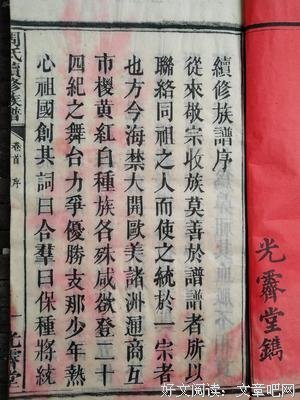 續修族譜序
從來敬宗收族莫善於譜譜者所以
聯絡同祖之人而使之統於一宗者
也方今海禁大開歐美諸洲通商互
市椶黃紅白種族各殊咸欲登二十
四紀之舞台力爭優勝支那少年熱
心祖國創其詞曰合羣曰保種將統
周氏續修族譜
卷首
序
一
光霽堂
光霽堂鐫
好文阅读：文章吧网